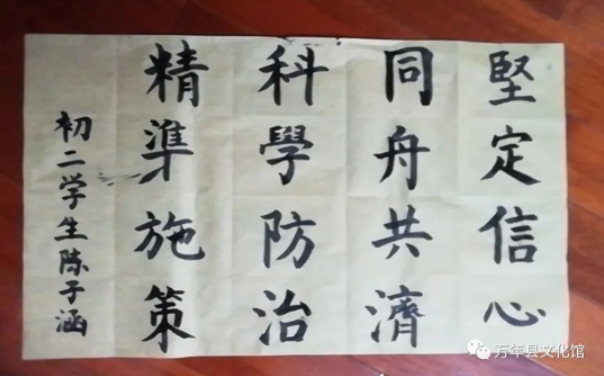 堅定信心
同舟共濟
科學防治
精準施策
初二学生陈子涵
万年县文化馆